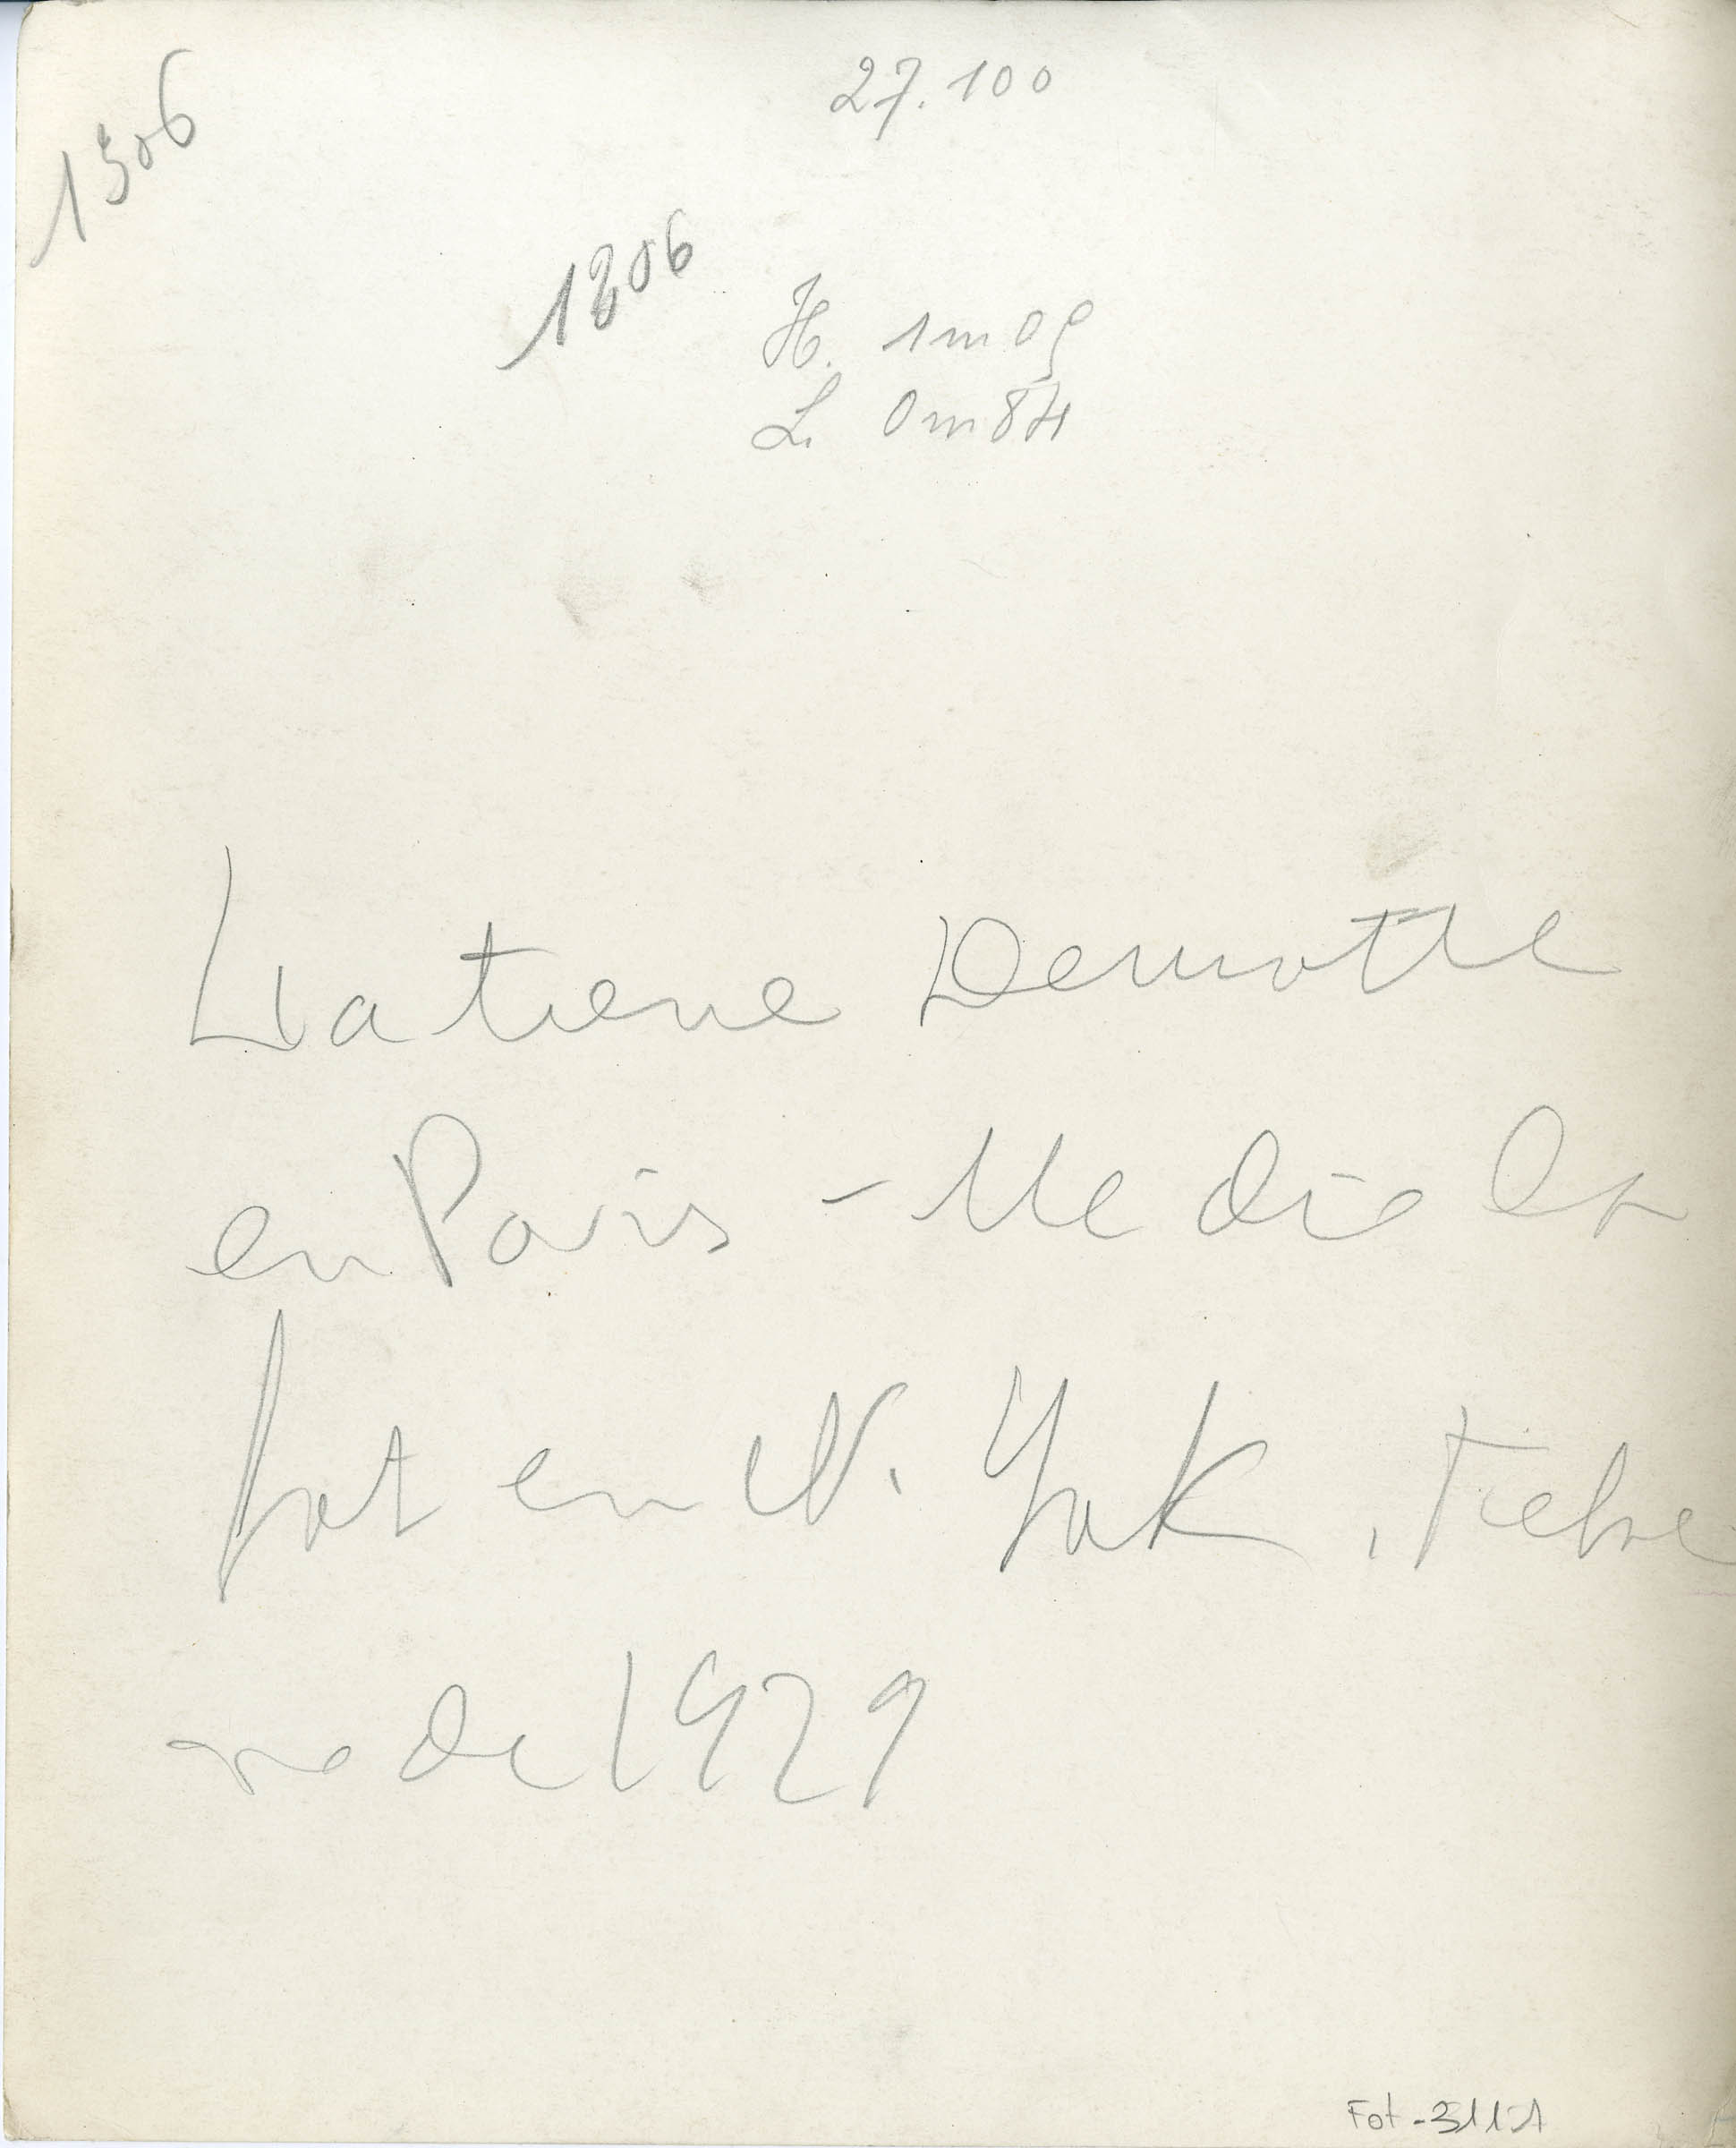 27.100
1506
1206
H. 1m09
L. 0m84
La tiene Demotte
en Paris - Me dio la
fot en N. York, Febre
ro de 1929
Fot-3111